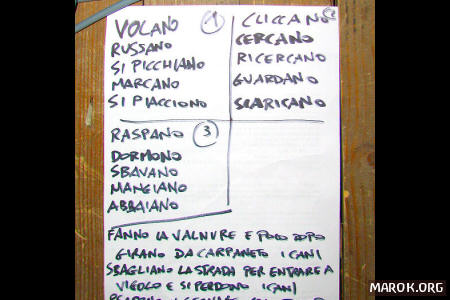 VOLANO 1
RUSSANO
SI PICCHIANO
MARCANO
SI PIACCIONO
CLICCANO
CERCANO
RICERCANO
GUARDANO
SCARICANO
RASPANO 3
DORMONO
SBAVANO
MANGIANO
ABBAIANO
FANNO LA VALNURE E POCO DOPO
GIRANO DA CARPANETO I CANI
SBAGLIANO LA STRADA PER ENTRARE A
VIGOLO E SI PERDONO I CANI
MAROK.ORG